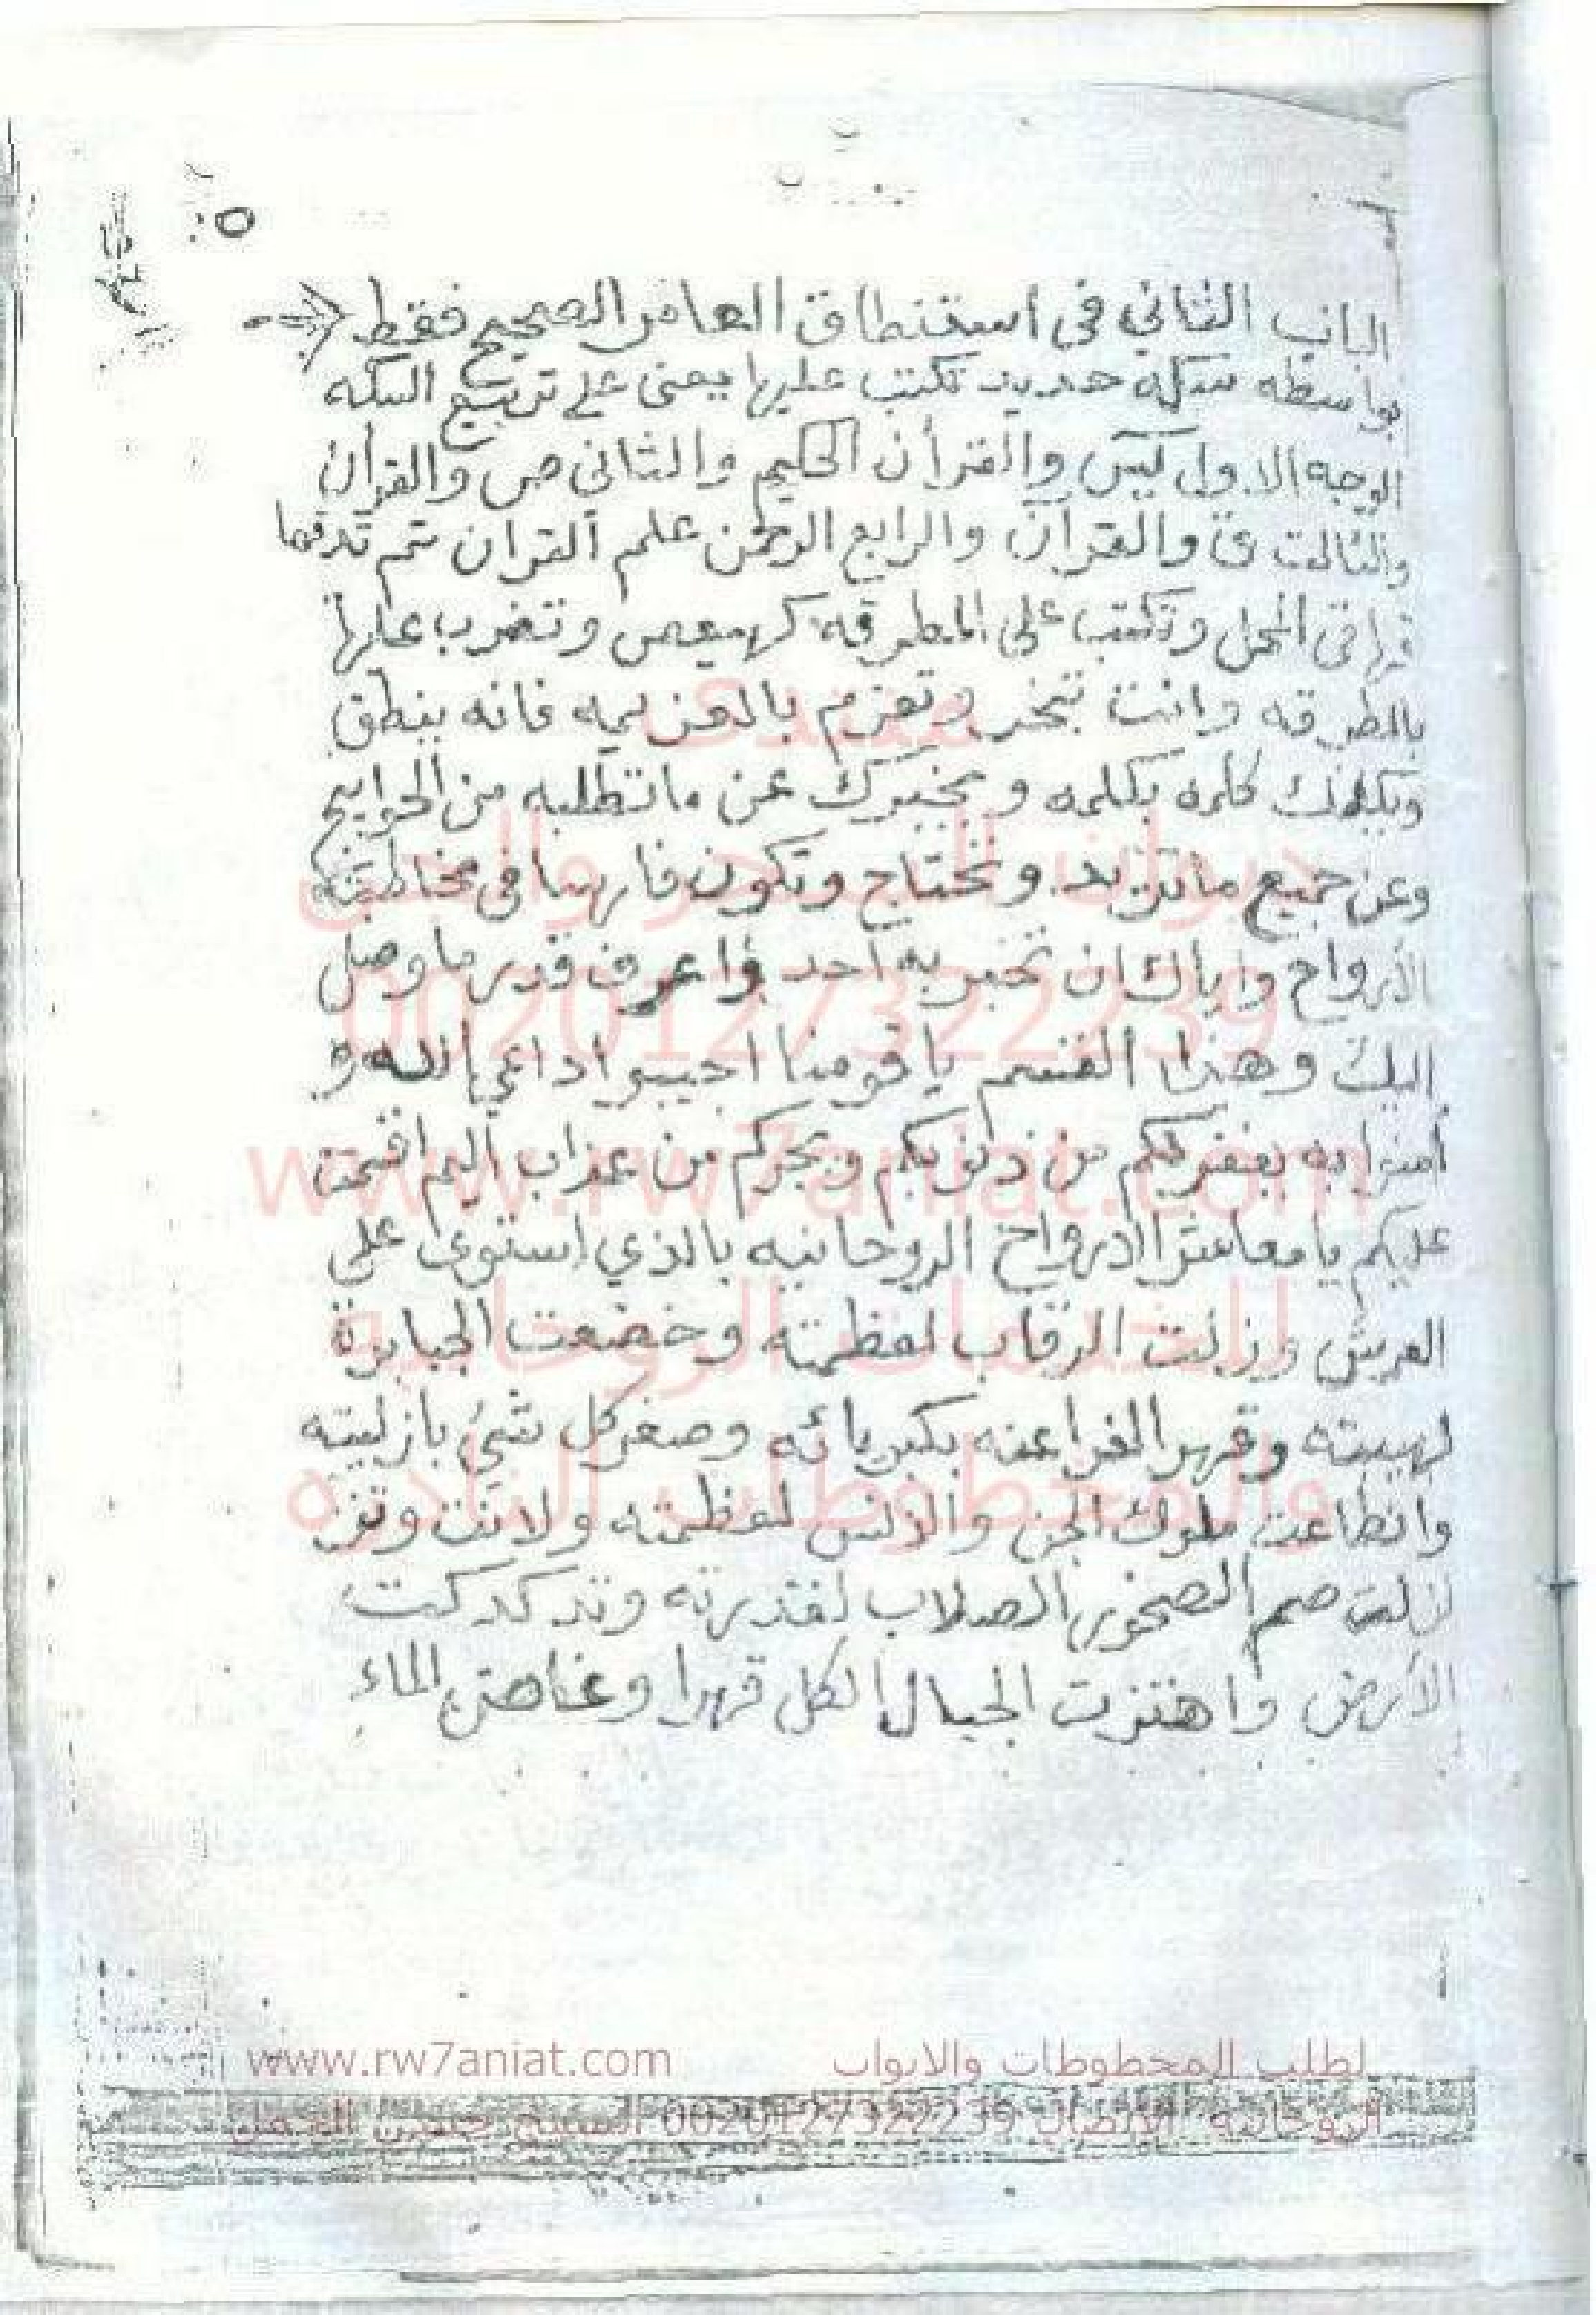 ٥
الباب الثاني في استنطاق العامر الصحيح فقط
بواسطه سكة حديد تكتب عليها يعنى على تربيع السكه
الوجه الاول يس والقرأن الحكيم والثانى ص والقرأن
والثالث ق والقرآن والرابع الرحمن علم القران تم تدقها
فى المحل وتكتب على المطرقه كهيعص وتضرب عليها
بالمطرقه وانت تبخر وتعزم بالعزيمه فانه ينطق
ويكلمك كلمه بكلمه ويخبرك عن ما تطلبه من الحوايج
وعن جميع ما تريد وتحتاج وتكون فاهما فى مخاطبة
الأرواح واياك ان تخبر به أحد واعرف قدر ما وصل
اليك وهذا القسم يا قومنا اجيبوا داعي الله و
أمنوا به يغفر لكم من ذنوبكم ويجركم من عذاب اليم اقسمت
عليكم يا معاشر الارواح الروحانيه بالذي استوى على
العرش وزلت الرقاب لعظمته وخضعت الجبابرة
لهيبته وقهر الفراعنه بكبريائه وصغر كل شئ بازليته
وانطاعت ملوك الجن والانس لعظمته ولانت وتز
لزلت صم الصخور الصلاب لقدرته وتدكدكت
الأرض واهتزت الجبال الكل قهرا وغاضت الماء
ديوان السحر والجن
00201273222​39
www.rw7aniat.com
للخدمات الروحانية
والمخطوطات النادره
لطلب المخطوطات والابواب www.rw7aniat.com
الروحانية الاتصال 00201273222​39 الشيخ